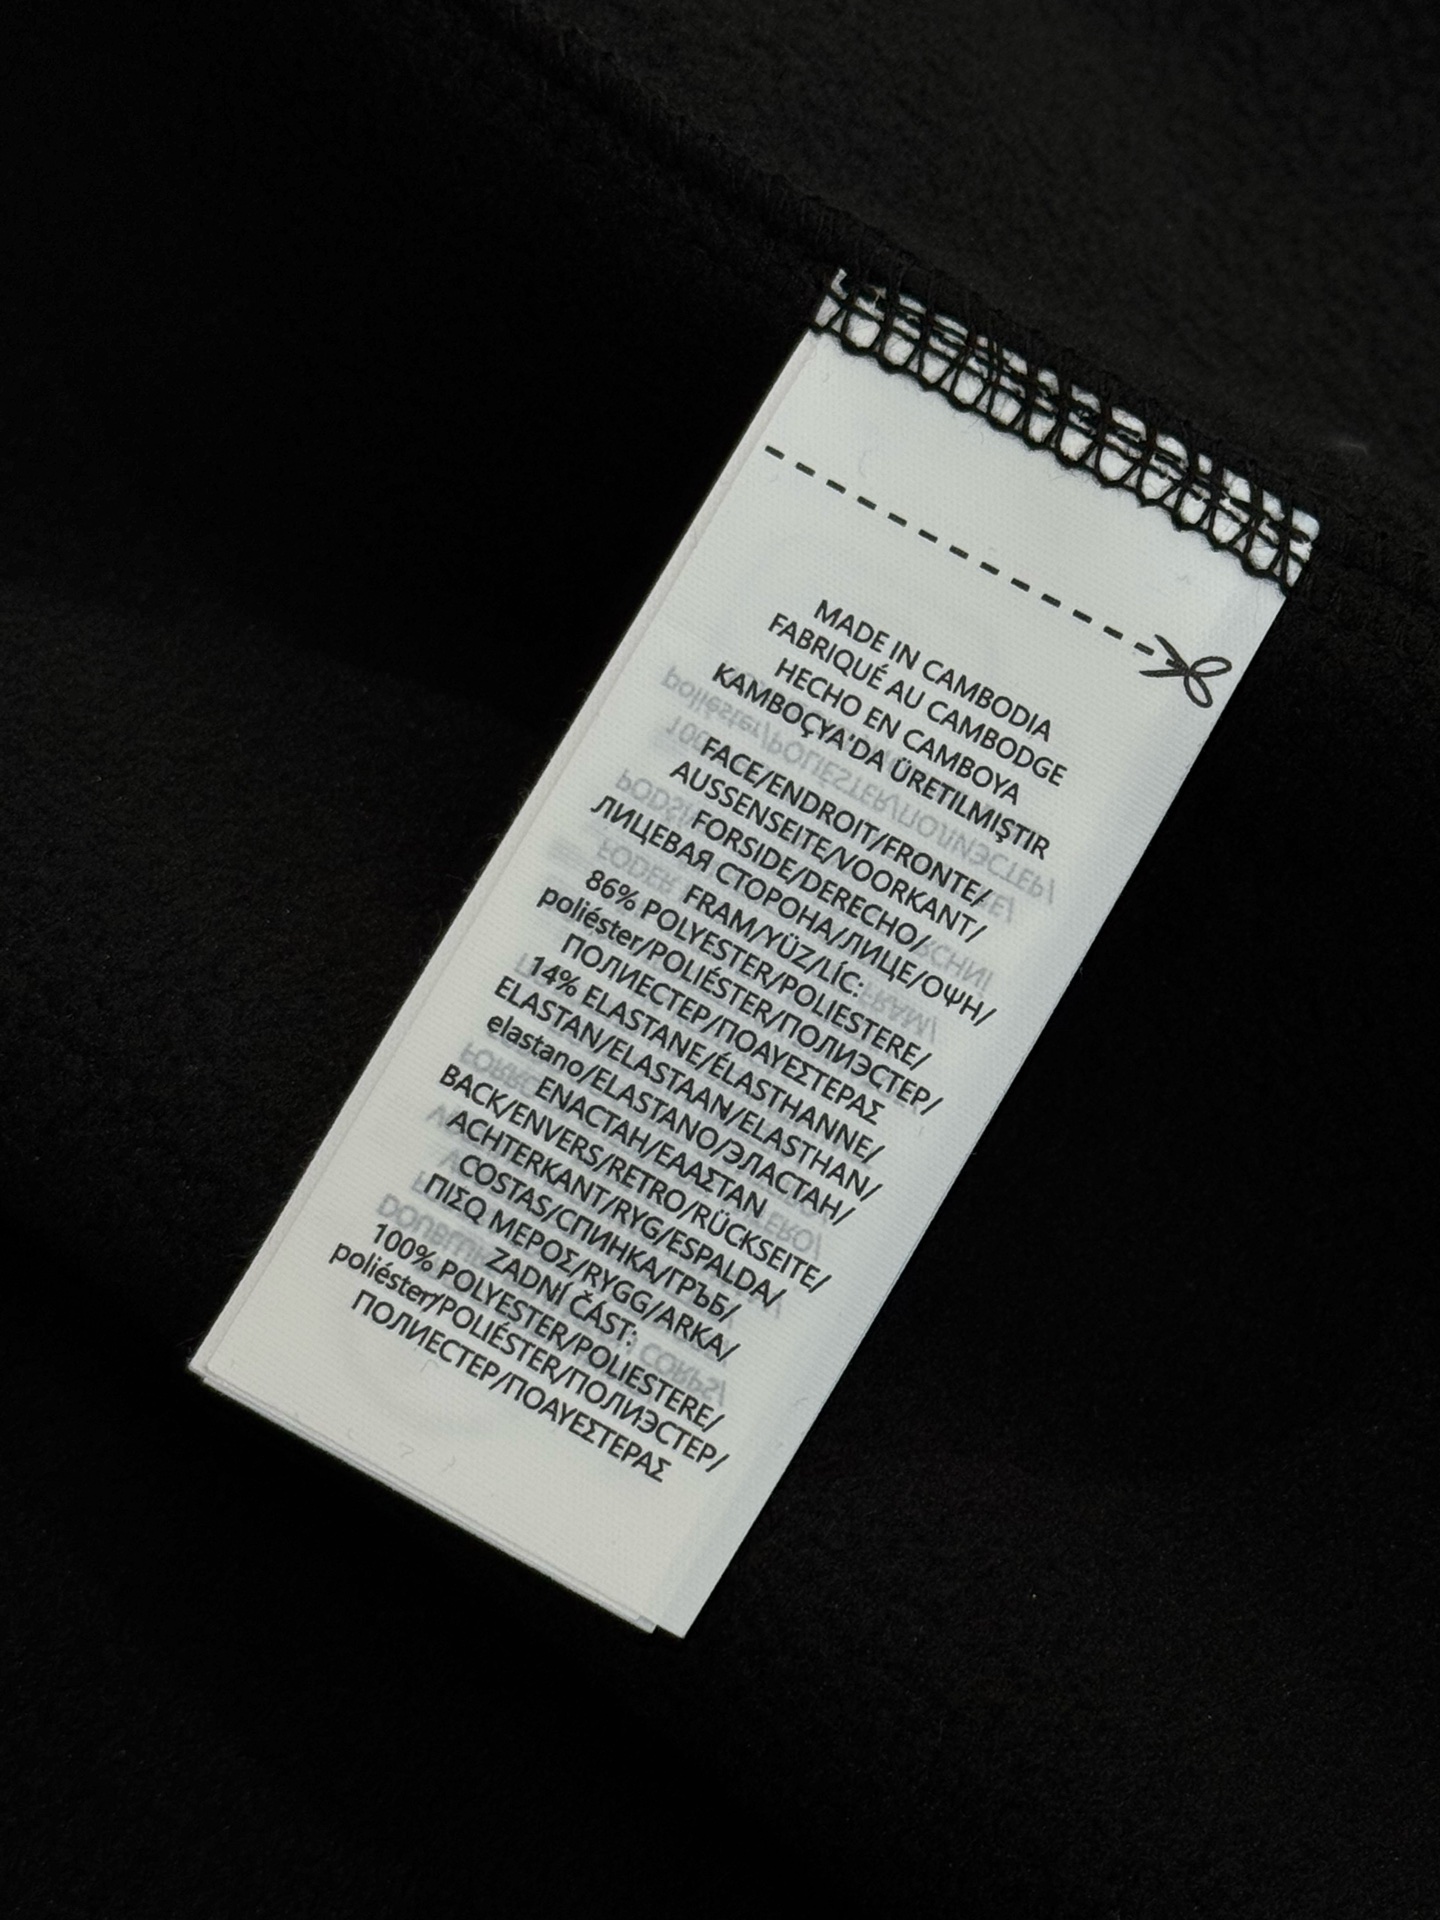 MADE IN CAMBODIA
FABRIQUÉ AU CAMBODGE
HECHO EN CAMBOYA
KAMBOÇYA'DA ÜRETILMIŞTIR
FACE/ENDROIT/FRONTE/
AUSSENSEITE/VOORKANT/
FORSIDE/DERECHO/
ЛИЦЕВАЯ СТОРОНА/ЛИЦЕ/ΟΨΗ/
FRAM/YÜZ/LÍC:
86% POLYESTER/POLIESTERE/
poliéster/POLIÉSTER/ПОЛИЭСТЕР/
ПОЛИЕСТЕР/ΠΟΛΥΕΣΤΕΡΑΣ
14% ELASTANE/ÉLASTHANNE/
ELASTAN/ELASTAAN/ELASTHAN/
elastano/ELASTANO/ЭЛАСТАН/
ЕΝΑСТАН/ΕΛΑΣΤΑΝ
BACK/ENVERS/RETRO/RÜCKSEITE/
ACHTERKANT/RYG/ESPALDA/
COSTAS/СПИНКА/ГРЪБ/
ΠΙΣΩ ΜΕΡΟΣ/RYGG/ARKA/
ZADNÍ ČÁST:
100% POLYESTER/POLIESTERE/
poliéster/POLIÉSTER/ПОЛИЭСТЕР/
ПОЛИЕСТЕР/ΠΟΛΥΕΣΤΕΡΑΣ